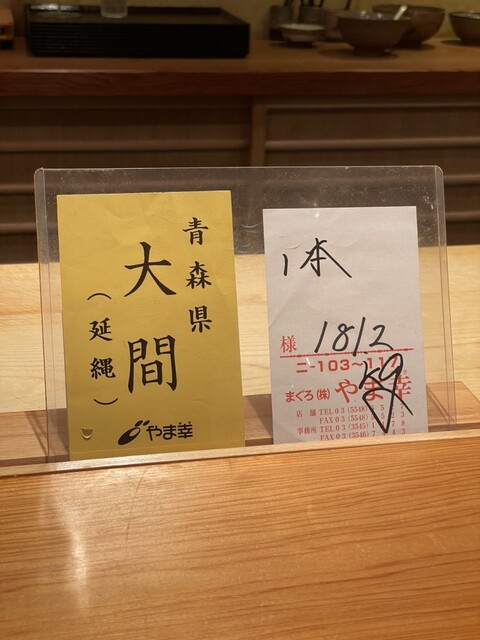 青森県
大間
（延縄）
やま幸
1本
様 181.2
kg
ニ-103〜117
まぐろ(株)やま幸
店舗 TEL03(5548)
FAX03(5548)
事務所 TEL03(3545)
FAX03(3546)